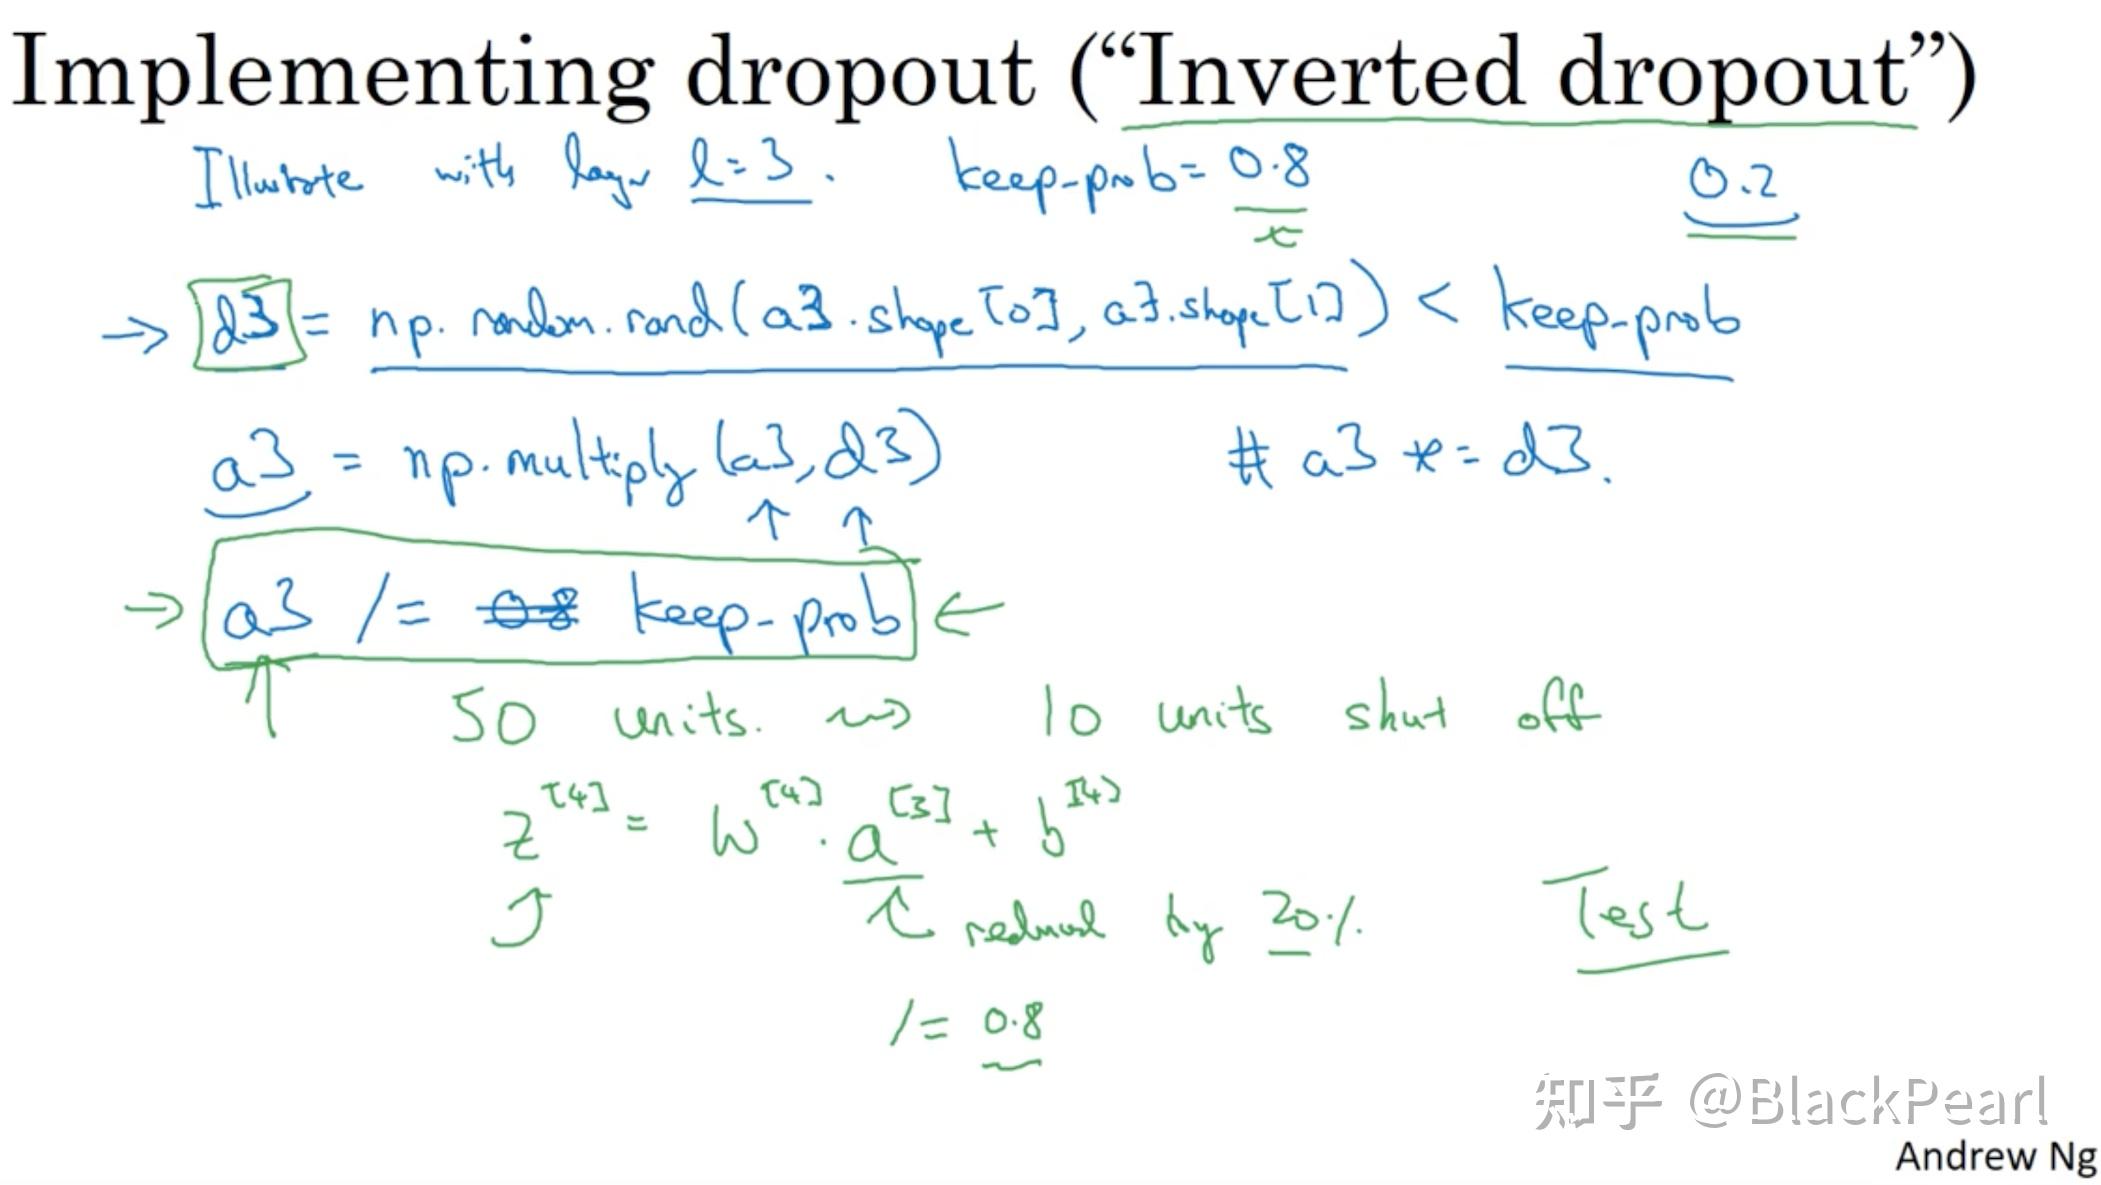 Implementing dropout (“Inverted dropout”)
Illustrate with layer l=3. keep-prob= 0.8 0.2
x
→ d3 = np.random.rand(a3.shape[0], a3.shape[1]) < keep-prob
a3 = np.multiply(a3, d3) # a3 *= d3.
↑ ↑
→ a3 /= 0.8 keep-prob ←
↑ 50 units. ⇝ 10 units shut off
z[4] = w[4] · a[3] + b[4]
reduced by 20% Test
/= 0.8
知乎 @BlackPearl
Andrew Ng